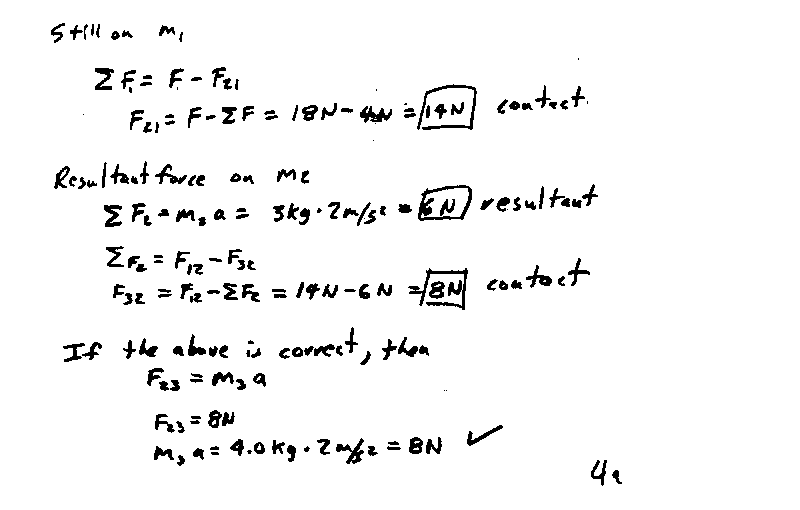 Still on m₁
ΣF₁ = F - F₂₁
F₂₁ = F - ΣF = 18N - 4N = 14N contact
Resultant force on m₂
ΣF₂ = m₂a = 3kg · 2m/s² = 6N resultant
ΣF₂ = F₁₂ - F₃₂
F₃₂ = F₁₂ - ΣF₂ = 14N - 6N = 8N contact
If the above is correct, then
F₂₃ = m₃a
F₂₃ = 8N
m₃a = 4.0kg · 2m/s² = 8N ✓